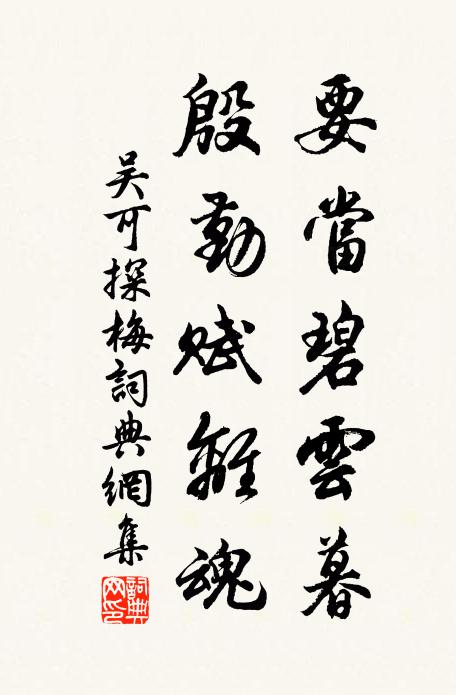 要當碧雲暮
殷勤賦離魂
吳可探梅詞典網集
詞典网印